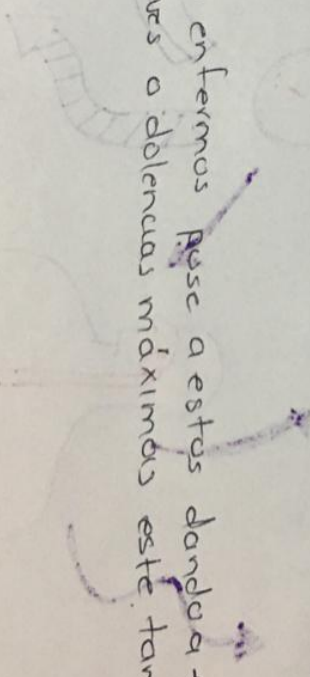 enfermos puse a estos dando a
ves o dolencias máximas este tan